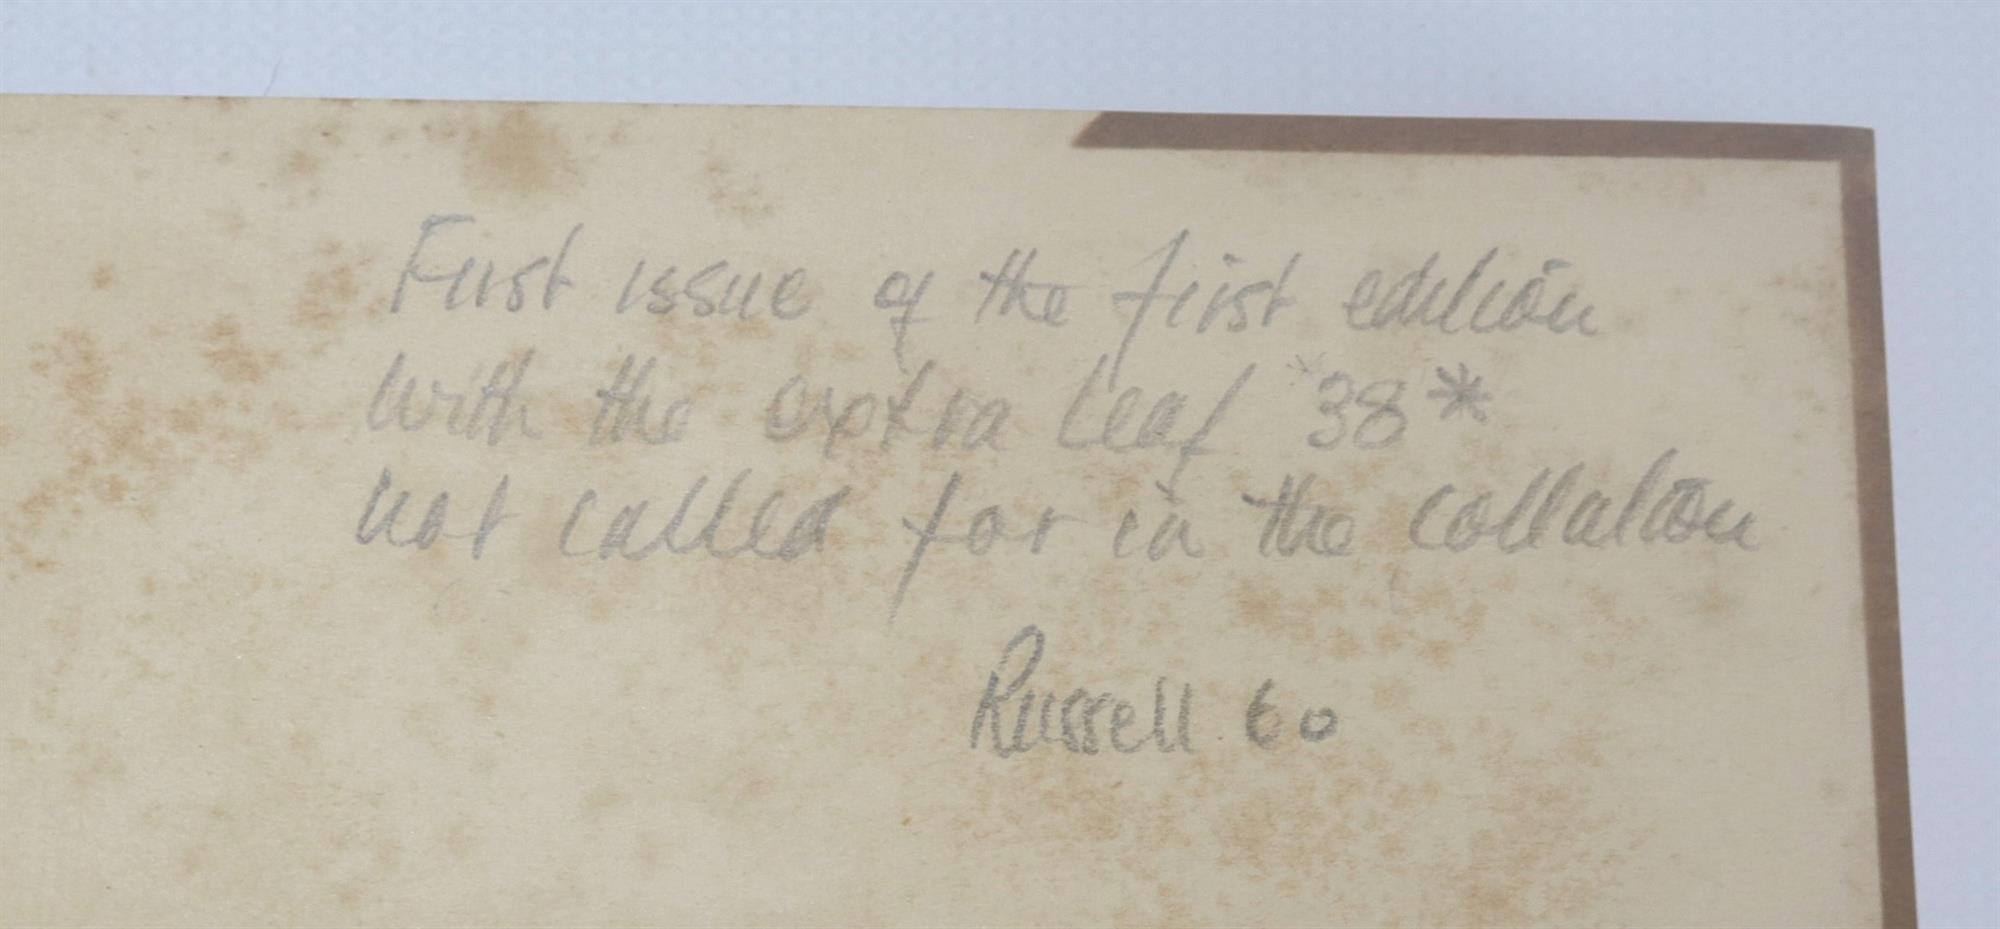 First issue of the first edition
with the extra leaf *38*
not called for in the collation
Russell 60